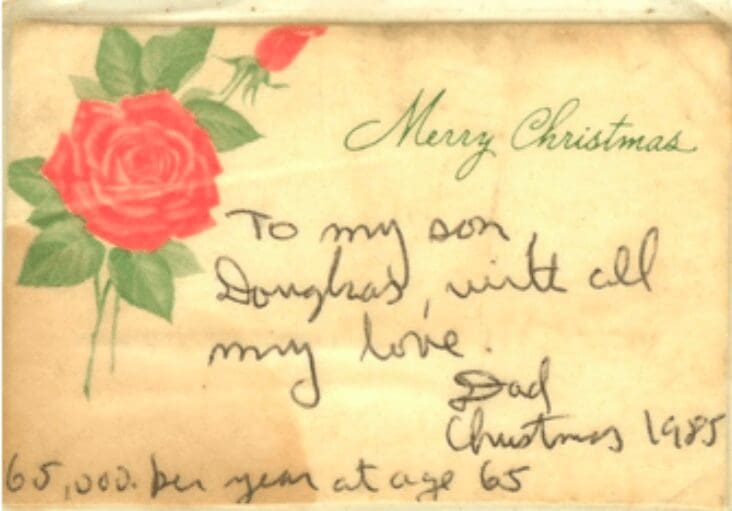 Merry Christmas
To my son
Douglas, with all
my love.
Dad
Christmas 1985
65,000. per year at age 65